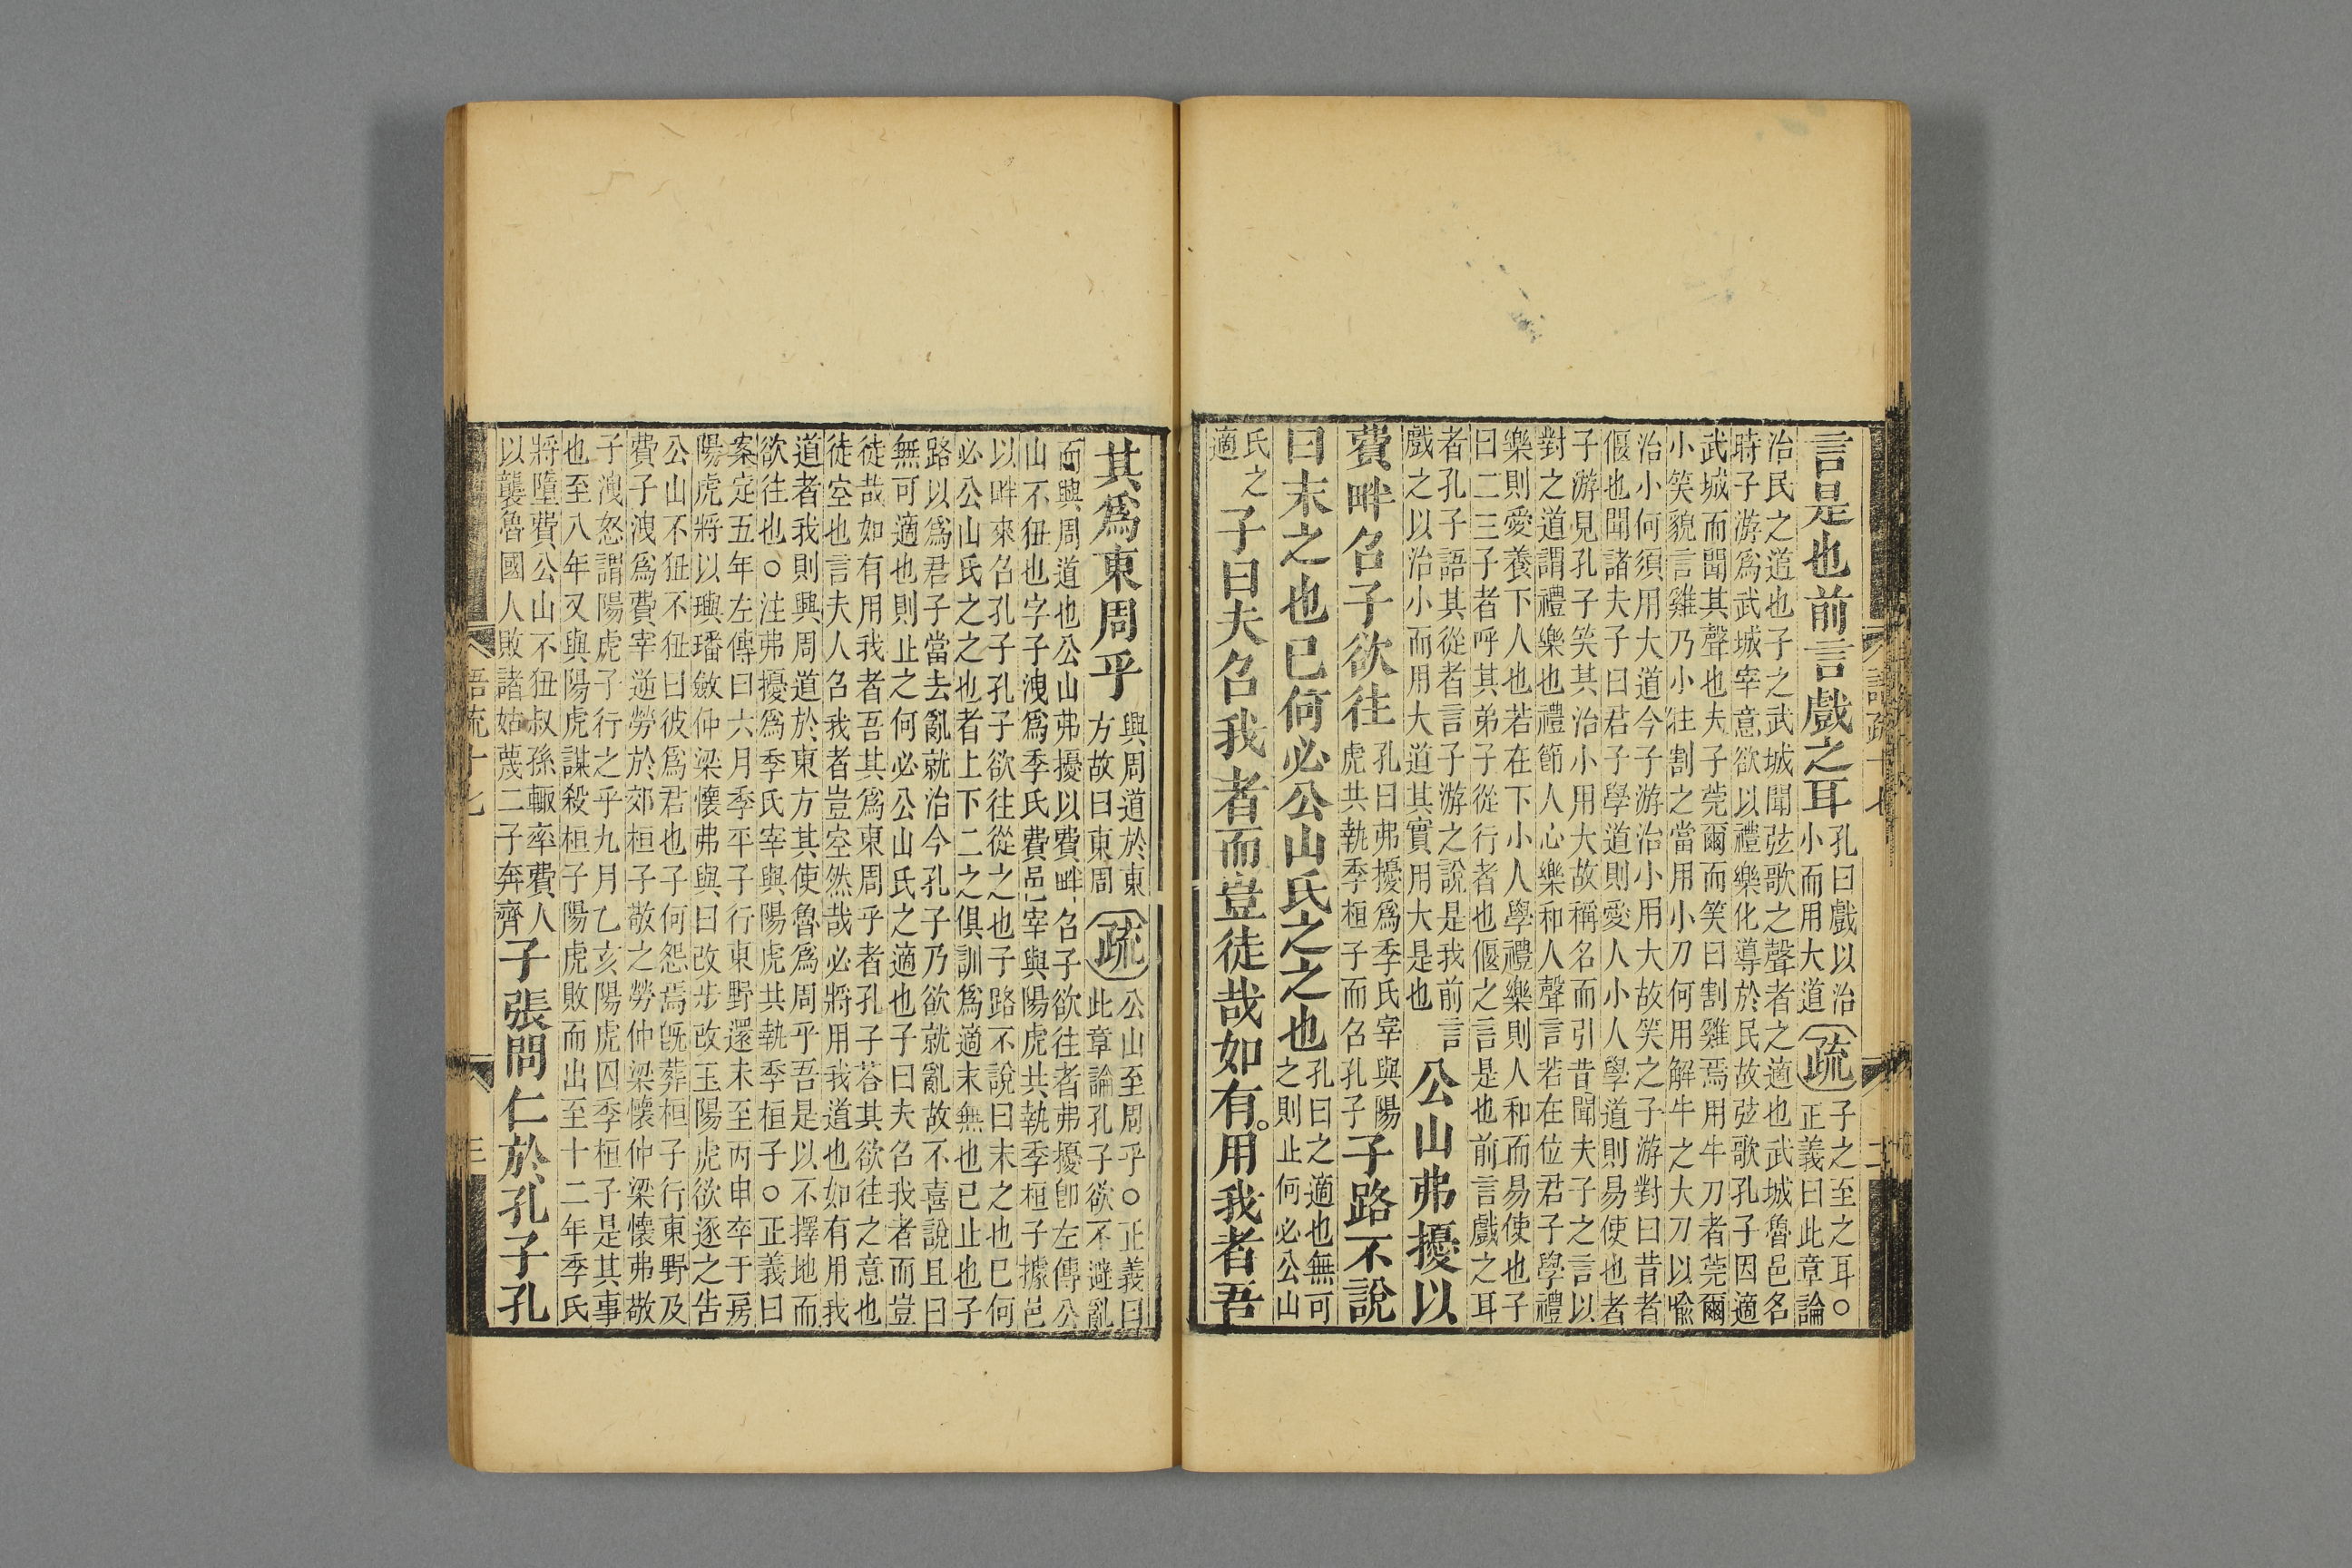 言是也前言戲之耳孔曰戲以治小而用大道疏子之至之耳○正義曰此章論
治民之道也子之武城聞弦歌之聲者之適也武城魯邑名
時子游爲武城宰意欲以禮樂化導於民故弦歌孔子因適
武城而聞其聲也夫子莞爾而笑曰割雞焉用牛刀者莞爾
小笑貌言雞乃小牲割之當用小刀何用解牛之大刀以喻
治小何須用大道今子游治小用大故笑之子游對曰昔者
偃也聞諸夫子曰君子學道則愛人小人學道則易使也者
子游見孔子笑其治小用大故稱名而引昔聞夫子之言以
對之道謂禮樂也禮節人心樂和人聲言若在位君子學禮
樂則愛養下人也若在下小人學禮樂則人和而易使也子
曰二三子者呼其弟子從行者也偃之言是也前言戲之耳
者孔子語其從者言子游之說是我前言
戲之以治小而用大道其實用大是也公山弗擾以
費畔召子欲往孔曰弗擾爲季氏宰與陽虎共執季桓子而召孔子子路不說
曰末之也已何必公山氏之之也孔曰之適也無可之則止何必公山
氏之適子曰夫召我者而豈徒哉如有用我者吾
其爲東周乎興周道於東方故曰東周疏公山至周乎○正義曰此章論孔子欲不避亂
而興周道也公山弗擾以費畔召子欲往者弗擾卽左傳公
山不狃也字子洩爲季氏費邑宰與陽虎共執季桓子據邑
以畔來召孔子孔子欲往從之也子路不說曰末之也已何
必公山氏之之也者上下二之俱訓爲適末無也已止也子
路以爲君子當去亂就治今孔子乃欲就亂故不喜說且曰
無可適也則止之何必公山氏之適也子曰夫召我者而豈
徒哉如有用我者吾其爲東周乎者孔子荅其欲往之意也
徒空也言夫人召我者豈空然哉必將用我道也如有用我
道者我則興周道於東方其使魯爲周乎吾是以不擇地而
欲往也○注弗擾爲季氏宰與陽虎共執季桓子○正義曰
案定五年左傳曰六月季平子行東野還未至丙申卒于房
陽虎將以璵璠斂仲梁懷弗與曰改步改玉陽虎欲逐之告
公山不狃不狃曰彼爲君也子何怨焉旣葬桓子行東野及
費子洩爲費宰逆勞於郊桓子敬之勞仲梁懷仲梁懷弗敬
子洩怒謂陽虎子行之乎九月乙亥陽虎囚季桓子是其事
也至八年又與陽虎謀殺桓子陽虎敗而出至十二年季氏
將墮費公山不狃叔孫輒率費人
以襲魯國人敗諸姑蔑二子奔齊子張問仁於孔子孔